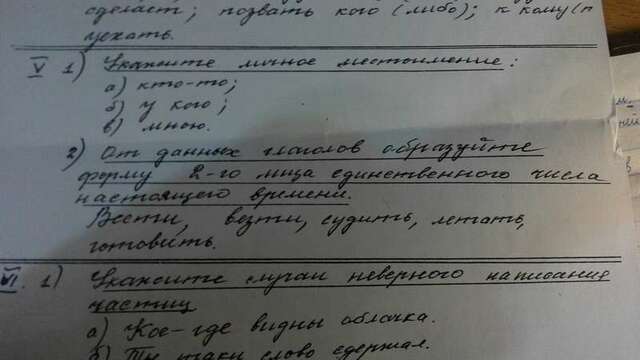 сделает; позвать кого (либо); к кому(п
уехать.
V 1) Укажите личное местоимение:
а) кто-то;
б) у кого;
в) мною.
2) От данных глаголов образуйте
форму 2-го лица единственного числа
настоящего времени.
Вести, везти, судить, летать,
готовить.
VI. 1) Укажите случаи неверного написания
частиц
а) Кое-где видны облачка.
б) Ты таки слово сдержал.